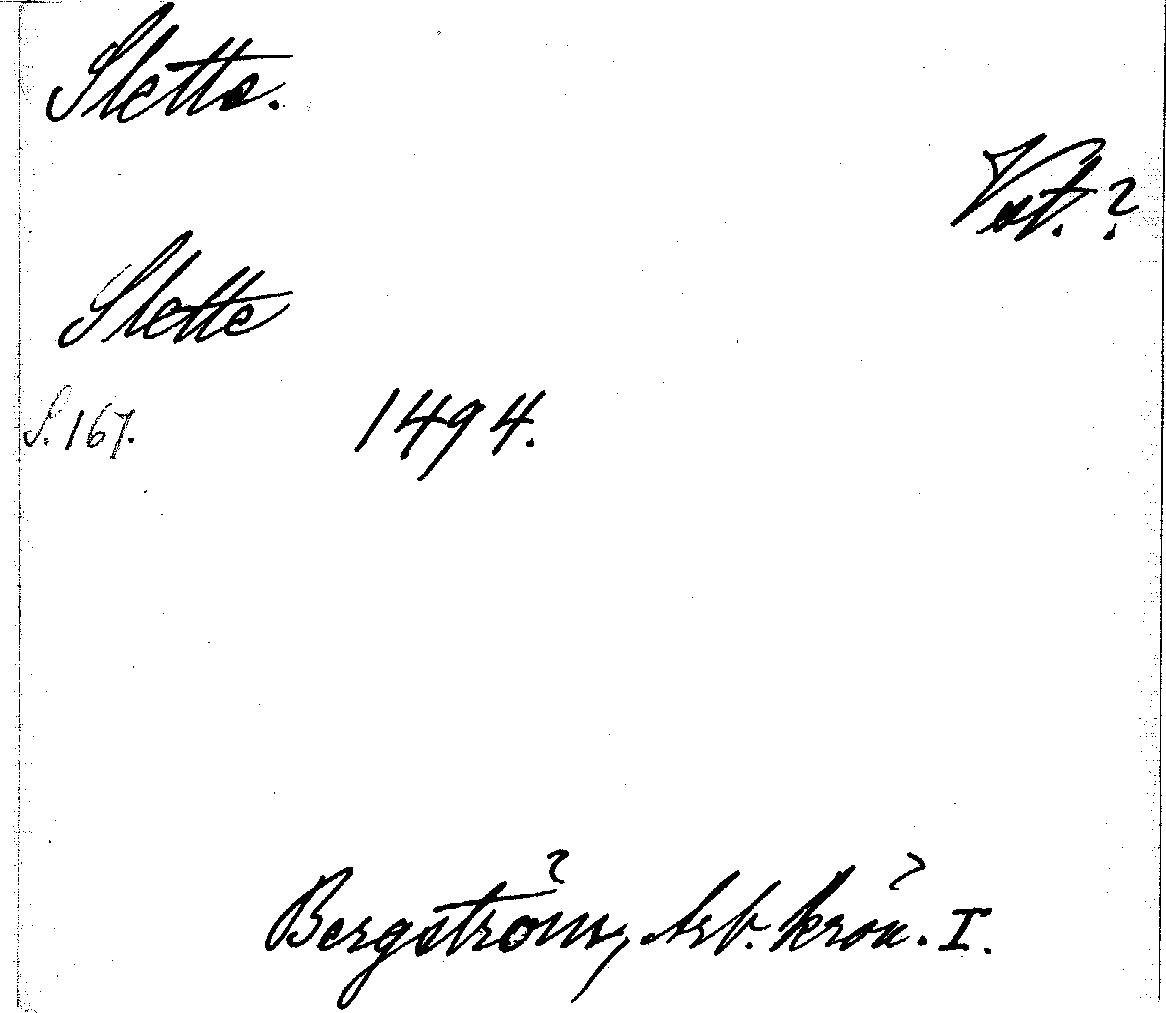 Sletta.
Vat.?
Slette
S. 167. 1494.
Bergström, Arb. krön. I.